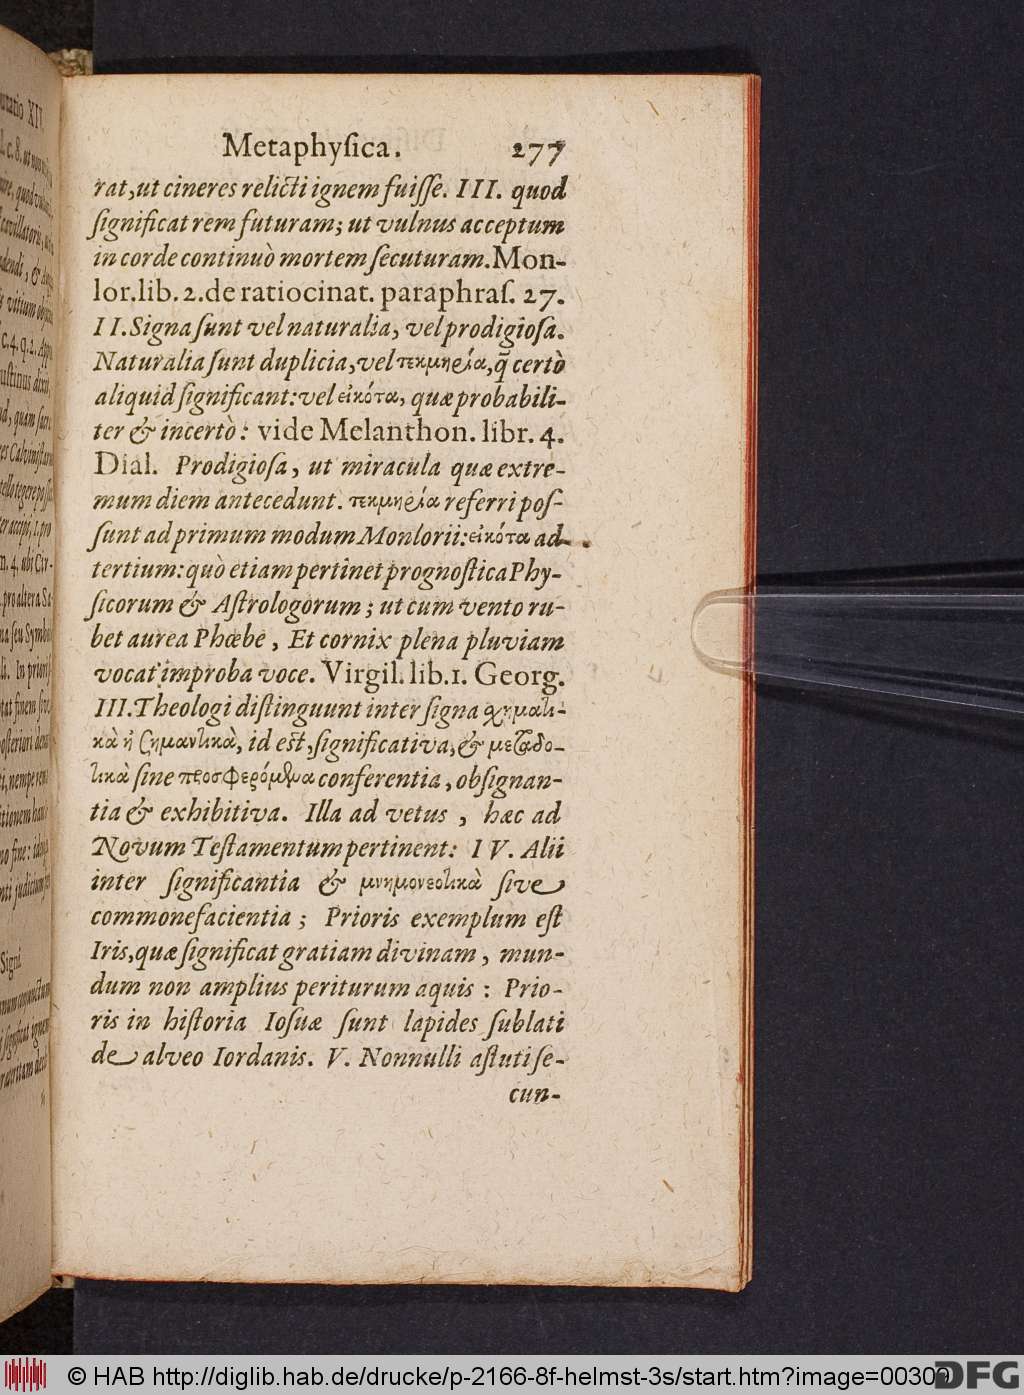 Metaphyſica. 277
rat, ut cineres relicti ignem fuiſſe. III. quod
ſignificat rem futuram; ut vulnus acceptum
in corde continuò mortem ſecuturam. Mon-
lor. lib. 2. de ratiocinat. paraphraſ. 27.
II. Signa ſunt vel naturalia, vel prodigioſa.
Naturalia ſunt duplicia, vel τεκμηρία, q̃ certò
aliquid ſignificant: vel εἰκότα, quæ probabili-
ter & incertò: vide Melanthon. libr. 4.
Dial. Prodigioſa, ut miracula quæ extre-
mum diem antecedunt. τεκμηρία referri poſ-
ſunt ad primum modum Monlorii: εἰκότα ad
tertium: quò etiam pertinet prognoſtica Phy-
ſicorum & Aſtrologorum; ut cum vento ru-
bet aurea Phœbe, Et cornix plena pluviam
vocat improba voce. Virgil. lib. 1. Georg.
III. Theologi diſtinguunt inter ſigna
id eſt, ſignificativa, & μεταδο-
τικὰ ſine conferentia, obſignan-
tia & exhibitiva. Illa ad vetus, hæc ad
Novum Teſtamentum pertinent: IV. Alii
inter ſignificantia & μνημονεοτικὰ ſive
commonefacientia; Prioris exemplum eſt
Iris, quæ ſignificat gratiam divinam, mun-
dum non amplius periturum aquis: Prio-
ris in hiſtoria Ioſuæ ſunt lapides ſublati
de alveo Iordanis. V. Nonnulli aſtuti ſe-
cun-
© HAB http://diglib.hab.de/drucke/p-2166-8f-helmst-3s/start.htm?image=00309
DFG